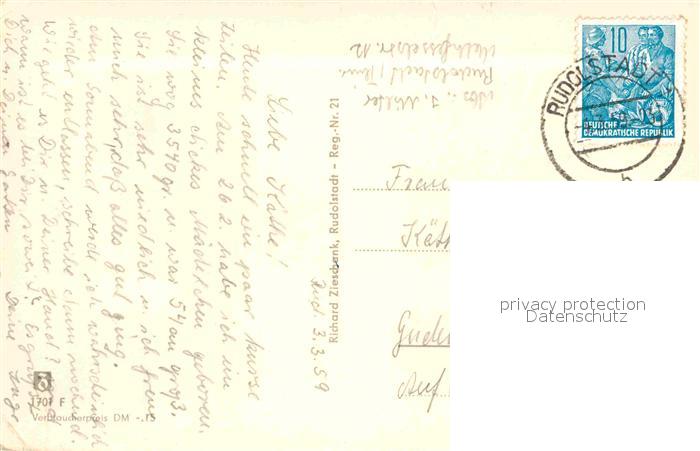 Liebe Käthe!
Heute schnell ein paar kurze
Zeilen. Am 26.2. habe ich ein
kleines dickes Mädelchen geboren.
Sie wog 3540 gr. u. war 54 cm groß.
Sie ist sehr niedlich u. ich freue
mich sehr, daß alles gut ging.
Am Sonnabend werde ich wahrscheinlich
wieder entlassen, schreibe dann nochmal.
Wie geht es Dir u. Deiner Hand?
wann ist es bei Dir soweit? Es grüßt
Dich u. Deinen Gatten Deine Inge
Rud. 3.3.59
Rudolstadt/Thür.
Richard Zieschank, Rudolstadt - Reg.-Nr. 21
10
DEUTSCHE
DEMOKRATISCHE REPUBLIK
RUDOLSTADT
Frau
Kät
Gude
Auf
1701 F
Verbraucherpreis DM -,15
privacy protection
Datenschutz